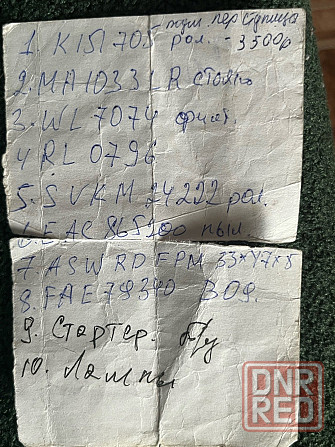 1 K151705 -
рол. - 3500р
2. MA1033 LR стойки
3. WL 7074 фильт.
4 RL 0796
5. SVKM 24222 рол.
6. EAC 865200 пыл.
7 ASWRDFPM 33x47x5
8. FAE 78340 ВОД.
9. Стартер. б/у
10. Лампы
DNR
RED